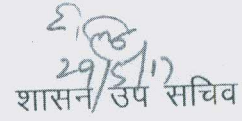 29/5/17
शासन उप सचिव